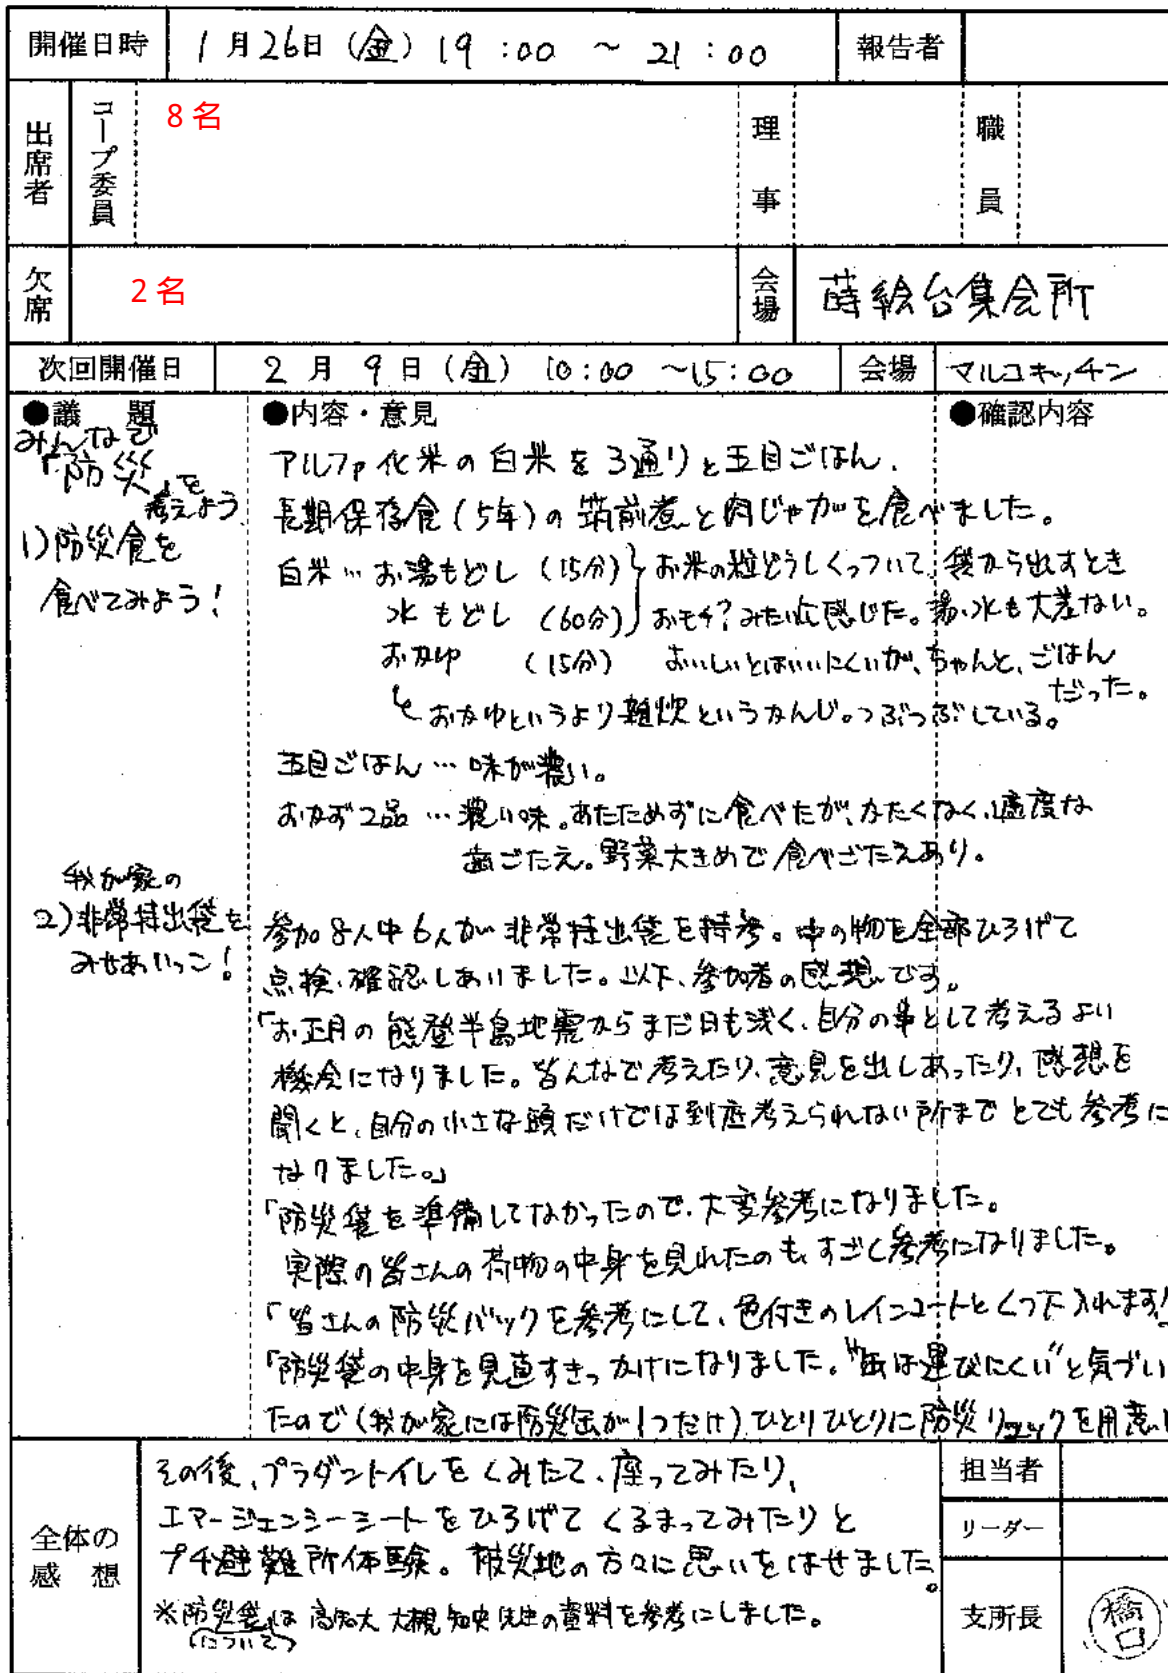 開催日時 1月26日(金) 19:00 ~ 21:00 報告者
出席者 コープ委員 8名 理事 職員
欠席 2名 会場 蒔絵台集会所
次回開催日 2月9日(金) 10:00 ~15:00 会場 マルコキッチン
●議題 ●内容・意見 ●確認内容
みんなで
「防災」を
考えよう
1)防災食を
食べてみよう!
アルファ化米の白米を3通りと五目ごはん、
長期保存食(5年)の筑前煮と肉じゃがを食べました。
白米…お湯もどし(15分)}お米の粒どうしくっついて、袋から出すとき
水もどし(60分)}おモチ?みたいに感じた。湯、水も大差ない。
おかゆ(15分) おいしいとはいいにくいが、ちゃんと、ごはん
だった。
↳おかゆというより雑炊というかんじ。つぶつぶしている。
五目ごはん…味が濃い。
おかず2品…濃い味。あたためずに食べたが、かたくなく、適度な
歯ごたえ。野菜大きめで食べごたえあり。
我が家の
2)非常持出袋を
みせあいっこ!
参加8人中6人が非常持出袋を持参。中の物を全部ひろげて
点検、確認しあいました。以下、参加者の感想です。
「お正月の能登半島地震からまだ日も浅く、自分の事として考えるよい
機会になりました。皆んなで考えたり、意見を出しあったり、感想を
聞くと、自分の小さな頭だけでは到底考えられない所までとても参考に
なりました。」
「防災袋を準備してなかったので、大変参考になりました。
実際の皆さんの荷物の中身を見れたのも、すごく参考になりました。
「皆さんの防災バックを参考にして、色付きのレインコートとくつ下入れます!
「防災袋の中身を見直すきっかけになりました。"缶は運びにくい"と気づい
たので(我が家には防災缶が1つだけ)ひとりひとりに防災リュックを用意し
全体の感想
その後、プラダントイレをくみたて、座ってみたり、
エマージェンシーシートをひろげてくるまってみたりと
プチ避難所体験。被災地の方々に思いをはせました。
※防災袋については高知大 大槻知史先生の資料を参考にしました。
担当者
リーダー
支所長 橋口